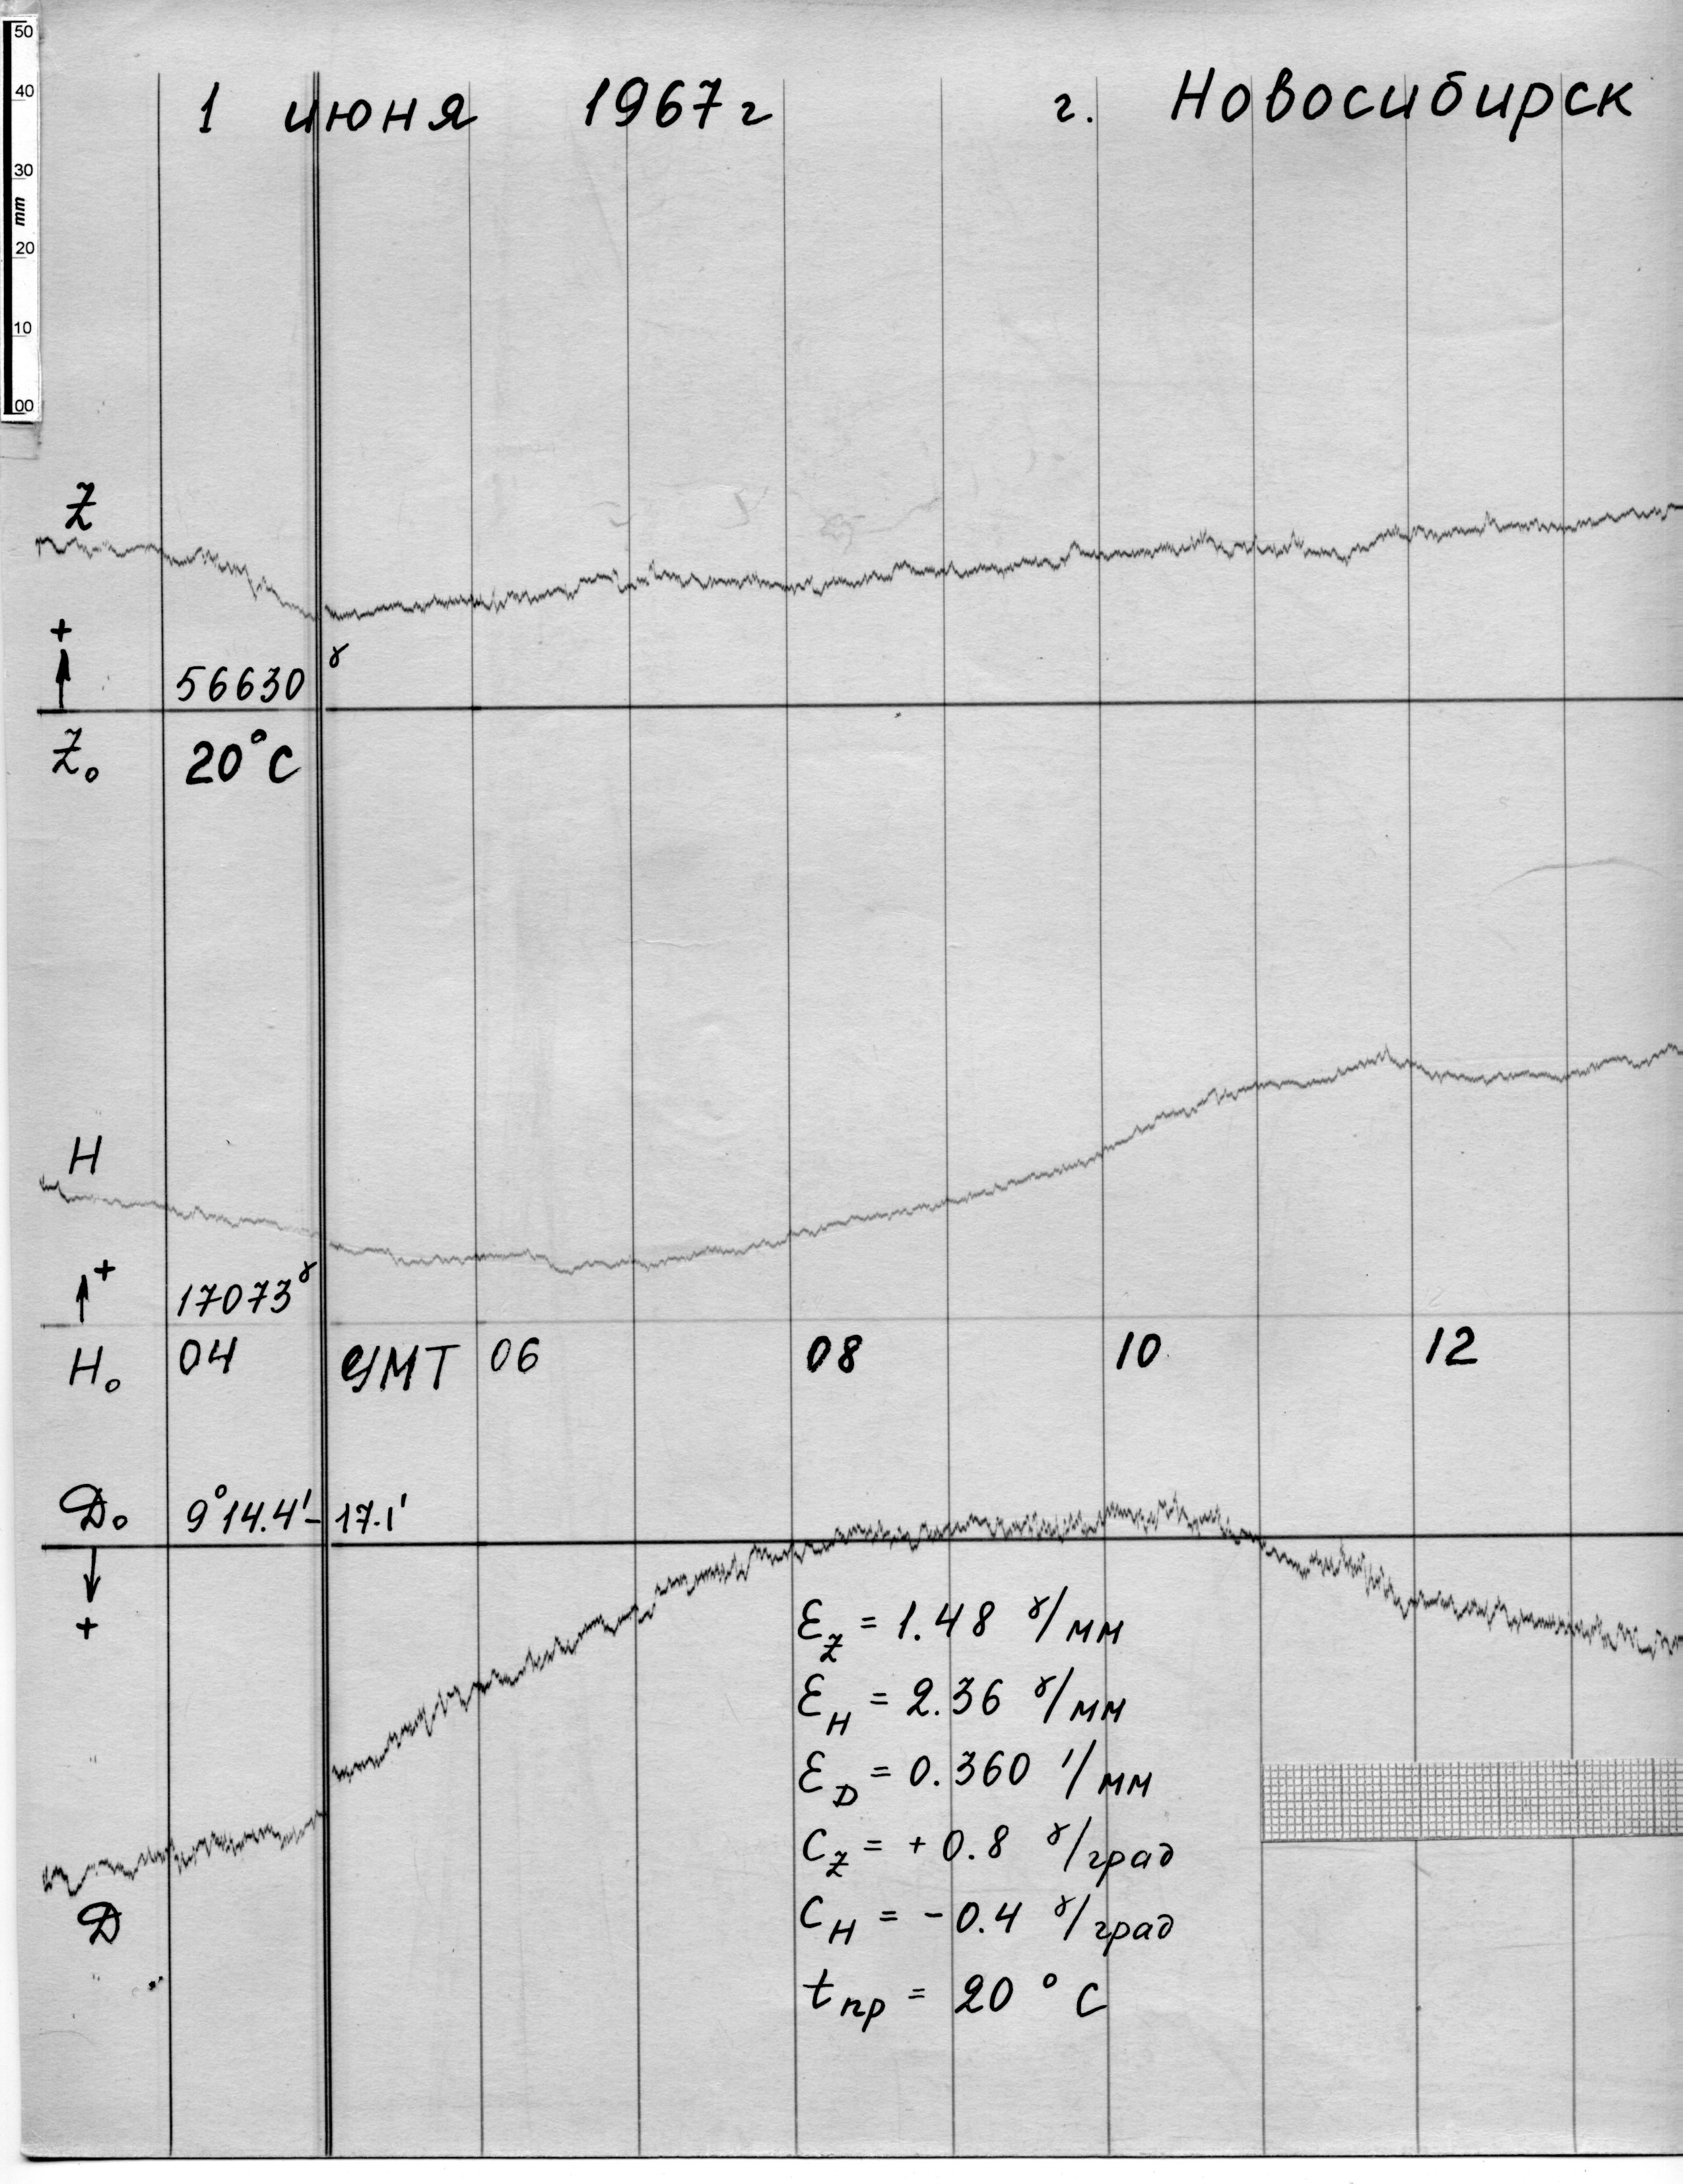 50
40
30
mm
20
10
00
1 июня 1967 г г. Новосибирск
Z
+
56630 γ
Z₀ 20°C
H
+
17073 γ
H₀ 04 УМТ 06 08 10 12
Д₀ 9°14.4' - 17.1'
+
Ɛ_Z = 1.48 γ/мм
Ɛ_H = 2.36 γ/мм
Ɛ_D = 0.360 '/мм
C_Z = + 0.8 γ/град
Д
C_H = - 0.4 γ/град
t_пр = 20 °C